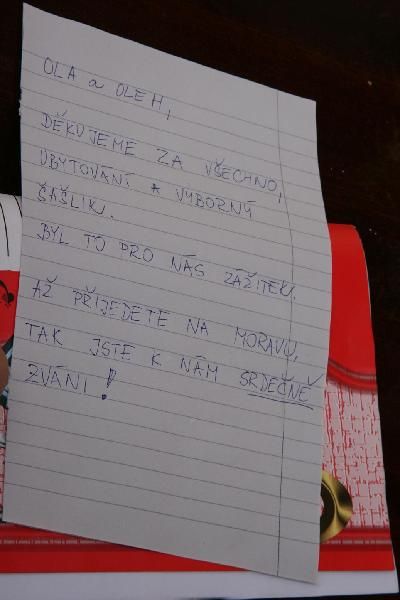 OLA a OLEH,
DĚKUJEME ZA VŠECHNO,
UBYTOVÁNÍ A VÝBORNÝ
ŠAŠLIK.
BYL TO PRO NÁS ZÁŽITEK.
AŽ PŘIJEDETE NA MORAVU,
TAK JSTE K NÁM SRDEČNĚ
ZVÁNI!